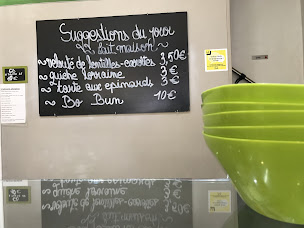 Suggestions du jour
fait maison!
~velouté de lentilles-carottes 3,50€
~quiche lorraine 3€
~tarte aux épinards 3€
~ Bo Bun 10€